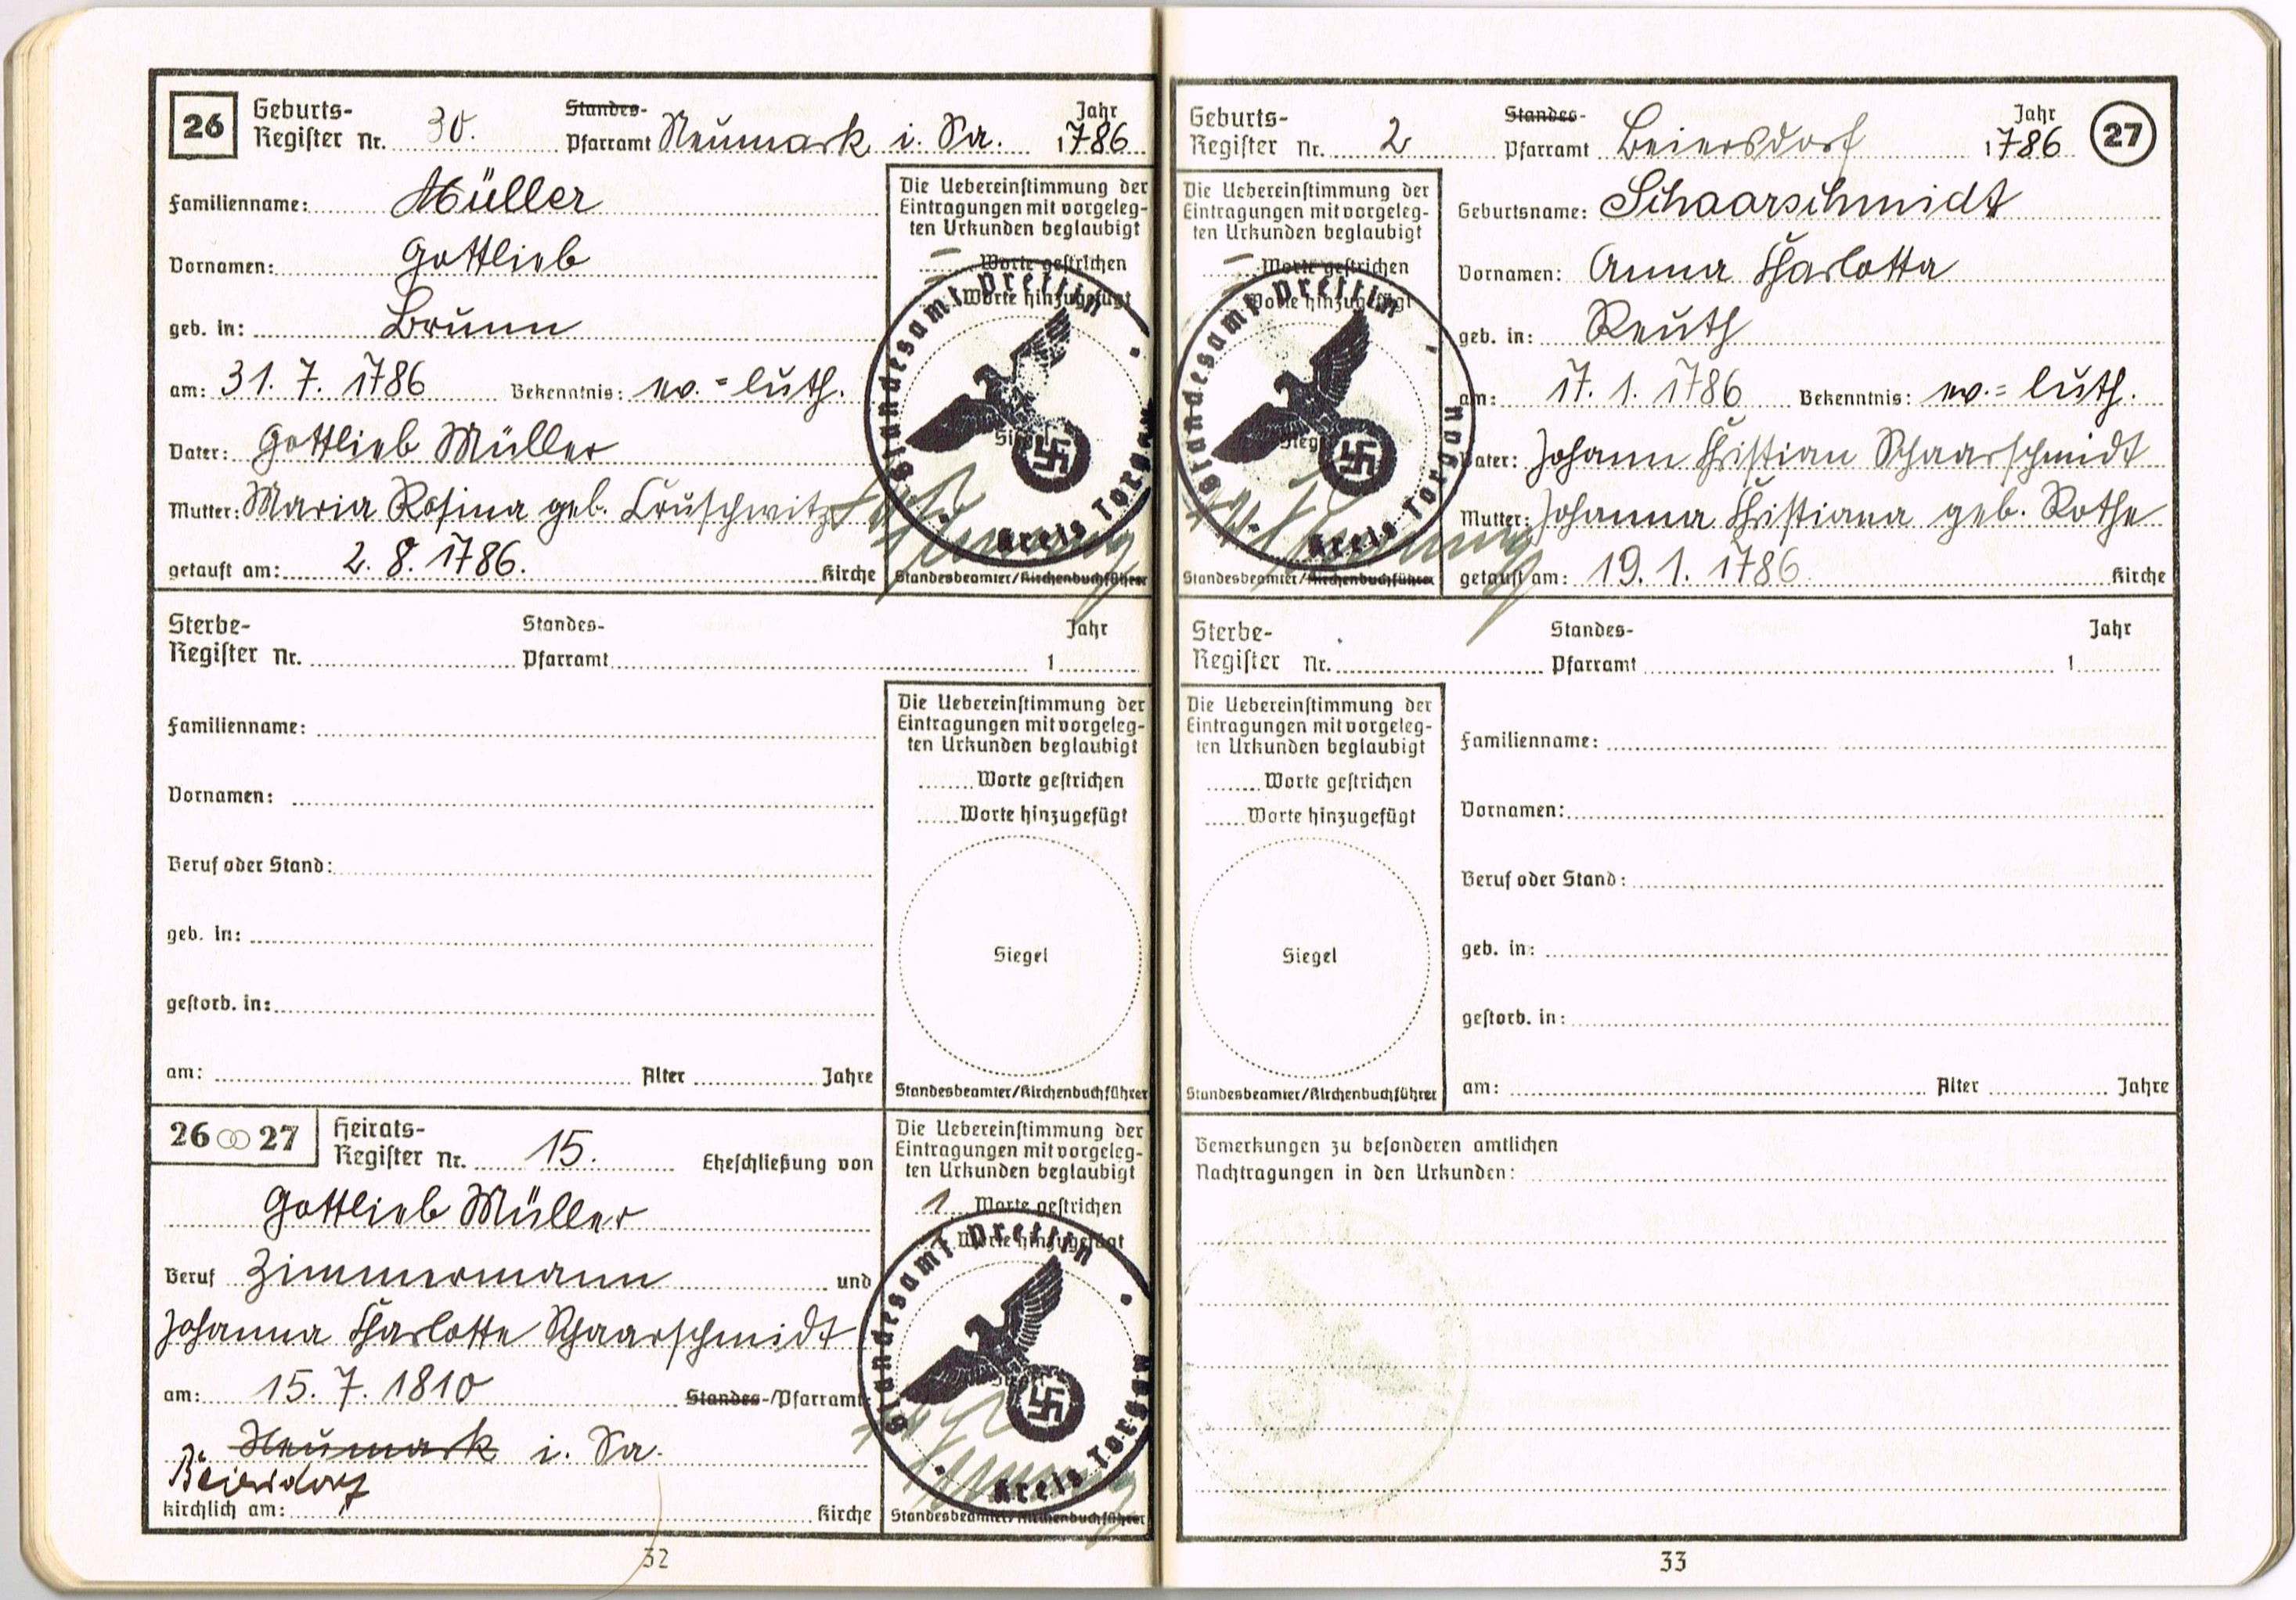 26 Geburts-Register Nr. 30. Standes-Pfarramt Neumark i. Sa. Jahr 1786
Familienname: Müller
Vornamen: Gottlieb
geb. in: Brunn
am: 31. 7. 1786 Bekenntnis: ev.=luth.
Vater: Gottlieb Müller
Mutter: Maria Rosina geb. Cruschwitz
getauft am: 2. 8. 1786. Kirche
Die Uebereinstimmung der
Eintragungen mit vorgeleg-
ten Urkunden beglaubigt
– Worte gestrichen
– Worte hinzugefügt
Siegel
Standesamt Prettin
Kreis Torgau
Standesbeamter/Kirchenbuchführer
Sterbe-Register Nr. Standes-Pfarramt Jahr 1
Familienname:
Vornamen:
Beruf oder Stand:
geb. in:
gestorb. in:
am: Alter Jahre
Die Uebereinstimmung der
Eintragungen mit vorgeleg-
ten Urkunden beglaubigt
Worte gestrichen
Worte hinzugefügt
Siegel
Standesbeamter/Kirchenbuchführer
26 ⚭ 27 Heirats-Register Nr. 15. Eheschließung von
Gottlieb Müller
Beruf Zimmermann und
Johanna Charlotte Schaarschmidt
am: 15. 7. 1810 Standes-/Pfarramt
Neumark i. Sa.
Beiersdorf
kirchlich am: Kirche
Die Uebereinstimmung der
Eintragungen mit vorgeleg-
ten Urkunden beglaubigt
1 Worte gestrichen
1 Worte hinzugefügt
Standesamt Prettin
Kreis Torgau
Standesbeamter/Kirchenbuchführer
32
Geburts-Register Nr. 2 Standes-Pfarramt Beiersdorf Jahr 1786 27
Die Uebereinstimmung der
Eintragungen mit vorgeleg-
ten Urkunden beglaubigt
– Worte gestrichen
– Worte hinzugefügt
Siegel
Standesamt Prettin
Kreis Torgau
Standesbeamter/Kirchenbuchführer
Geburtsname: Schaarschmidt
Vornamen: Anna Charlotta
geb. in: Reuth
am: 17. 1. 1786 Bekenntnis: ev.=luth.
Vater: Johann Christian Schaarschmidt
Mutter: Johanna Christiana geb. Rothe
getauft am: 19. 1. 1786 Kirche
Sterbe-Register Nr. Standes-Pfarramt Jahr 1
Die Uebereinstimmung der
Eintragungen mit vorgeleg-
ten Urkunden beglaubigt
Worte gestrichen
Worte hinzugefügt
Siegel
Standesbeamter/Kirchenbuchführer
Familienname:
Vornamen:
Beruf oder Stand:
geb. in:
gestorb. in:
am: Alter Jahre
Bemerkungen zu besonderen amtlichen
Nachtragungen in den Urkunden:
33